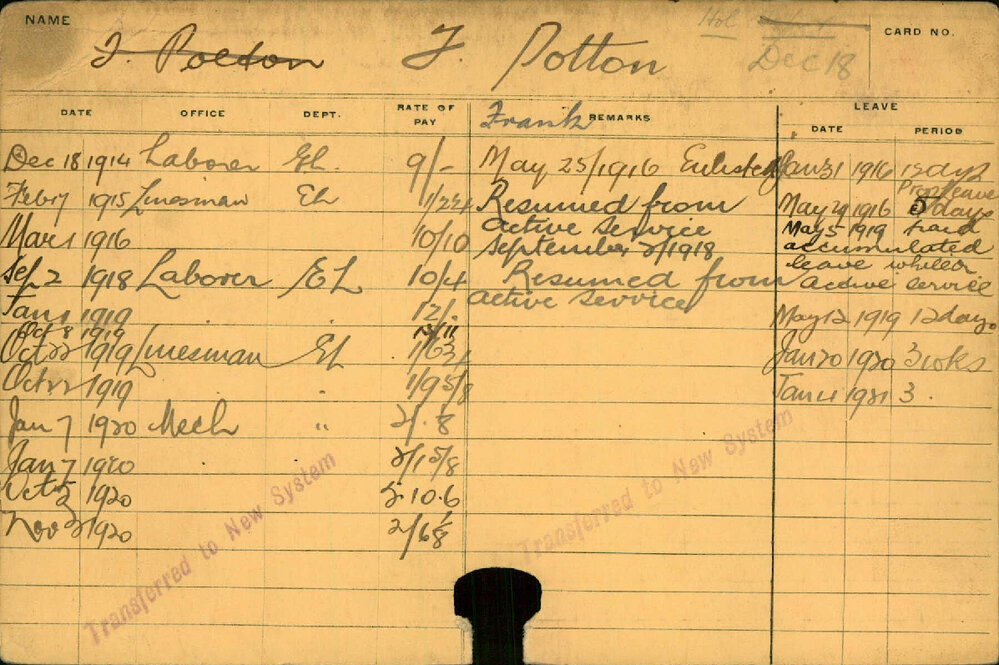 NAME
CARD NO.
F. Polton F. Potton
Hol
Dec 18
DATE OFFICE DEPT. RATE OF PAY REMARKS LEAVE
DATE PERIOD
Frank
Dec 18 1914 Laborer EL. 9/- May 25/1916 Enlisted Jan 31 1916 12 days
Feb 17 1915 Linesman EL Resumed from May 24 1916 days Prop leave
active service May 5 1919 Paid
Mar 1 1916 10/10 September 2/1918 accumulated
Sep 2 1918 Laborer EL 10/4 Resumed from leave whilst
active service active service
Jan 1 1919 12/- May 12 1919 12 days
Oct 8 1919 13/11
Oct 22 1919 Linesman EL Jan 20 1920 3 wks
Oct 22 1919 " 1/9 5/8 Jan 4 1921 3.
Jan 7 1920 Mech " 2/- 1/8
Jan 7 1920 2/1 5/8
Oct 1920 5.10.6
Nov 1920 2/6 1/8
Transferred to New System
Transferred to New System